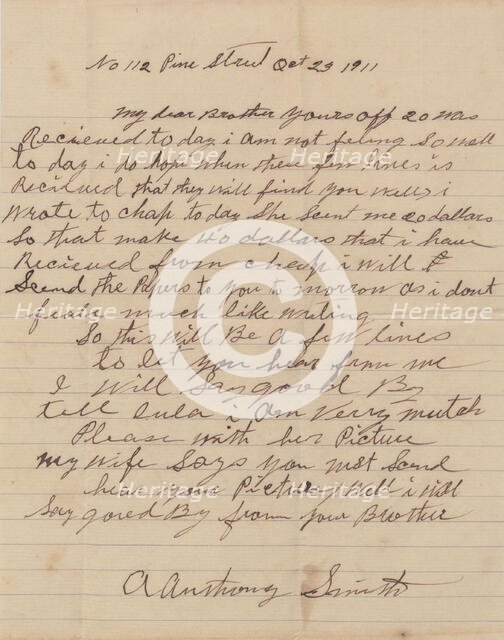 No 112 Pine Street Oct 23 1911
my dear Brother yours off 20 was
Recieved to day i am not feling so well
to day i do hope when these few lines is
Recieved that they will find you well i
wrote to chap to day she sent me 20 dollars
so that make 40 dollars that i have
Recieved from cheap i will
Scend the Papers to you to morrow as i dont
feale much like writing
So this will Be a few lines
to let you hear from me
I will say good By
tell lula i am verry mutch
Please with her Picture
my wife says you must send
hear your Picture well i will
say gored By from your Brother
A Anthony Smith
Heritage
Heritage
Heritage
Heritage
Heritage
Heritage
Heritage
Heritage
©